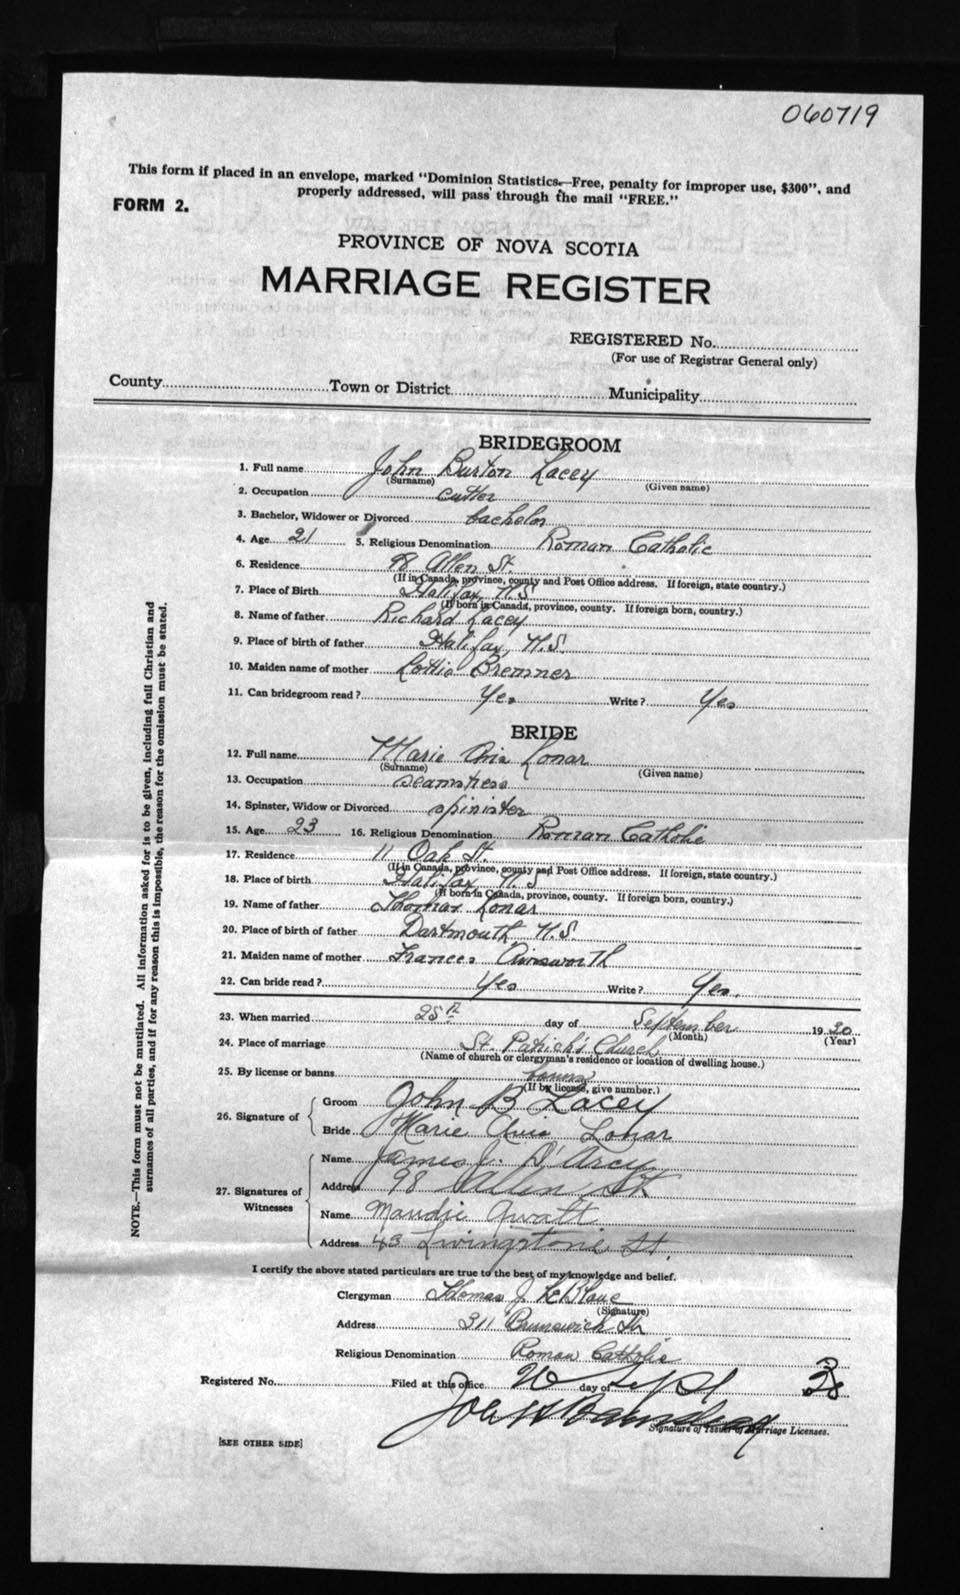 060719
This form if placed in an envelope, marked "Dominion Statistics—Free, penalty for improper use, $300", and
properly addressed, will pass through the mail "FREE."
FORM 2.
PROVINCE OF NOVA SCOTIA
MARRIAGE REGISTER
REGISTERED No.
(For use of Registrar General only)
County Town or District Municipality
BRIDEGROOM
1. Full name John Burton Lacey
(Surname) (Given name)
2. Occupation cutter
3. Bachelor, Widower or Divorced bachelor
4. Age 21 5. Religious Denomination Roman Catholic
6. Residence 98 Allen St.
(If in Canada, province, county and Post Office address. If foreign, state country.)
7. Place of Birth Halifax, N.S.
(If born in Canada, province, county. If foreign born, country.)
8. Name of father Richard Lacey
9. Place of birth of father Halifax, N.S.
10. Maiden name of mother Lottie Bremner
11. Can bridegroom read? Yes Write? Yes
BRIDE
12. Full name Marie Avis Lonar
(Surname) (Given name)
13. Occupation seamstress
14. Spinster, Widow or Divorced spinister
15. Age 23 16. Religious Denomination Roman Catholic
17. Residence 11 Oak St.
(If in Canada, province, county and Post Office address. If foreign, state country.)
18. Place of birth Halifax N.S
(If born in Canada, province, county. If foreign born, country.)
19. Name of father Thomas Lonar
20. Place of birth of father Dartmouth N.S.
21. Maiden name of mother Frances Ainsworth
22. Can bride read? Yes Write? Yes.
23. When married 25th day of September 19 30
(Month) (Year)
24. Place of marriage St. Patrick's Church
(Name of church or clergyman's residence or location of dwelling house.)
25. By license or banns banns
(If by license, give number.)
26. Signature of
Groom John B Lacey
Bride Marie Avis Lonar
27. Signatures of Witnesses
Name James J. D'Arcy
Address 98 Allen St
Name Maudie
Address 43 Livingstone St.
I certify the above stated particulars are true to the best of my knowledge and belief.
Clergyman Thomas J. LeBlanc
(Signature)
Address 311 Brunswick St
Religious Denomination Roman Catholic
Registered No. Filed at this office 26 day of Sept 30
Signature of Issuer of Marriage Licenses.
[SEE OTHER SIDE]
NOTE.—This form must not be mutilated. All information asked for is to be given, including full Christian and
surnames of all parties, and if for any reason this is impossible, the reason for the omission must be stated.